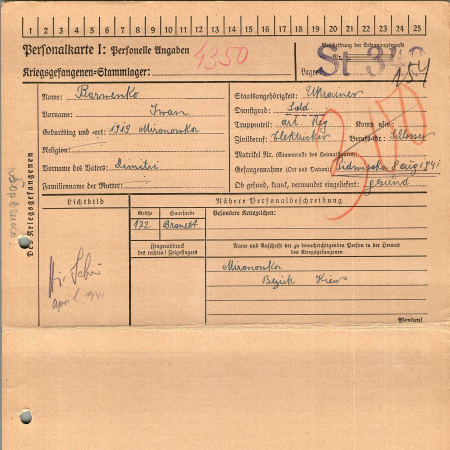 1 2 3 4 5 6 7 8 9 10 11 12 13 14 15 16 17 18 19 20 21 22 23 24 25
Personalkarte I: Personelle Angaben
4350
Beschriftung der Erkennungsmarke
Nr.
Kriegsgefangenen=Stammlager:
Lager
St 342
154
Des Kriegsgefangenen
Name:
Vorname: Iwan
Geburtstag und -ort: 1919 Mironowka
Religion:
Vorname des Vaters: Dimitri
Familienname der Mutter:
Staatsangehörigkeit: Ukrainer
Dienstgrad: Sold.
Truppenteil: art Reg Komp. usw.:
Zivilberuf: Elektriker Berufs-Gr.: Schlosser
Matrikel Nr. (Stammrolle des Heimatstaates):
Gefangennahme (Ort und Datum): 8 aug 1941
Ob gesund, krank, verwundet eingeliefert: gesund
Lichtbild
Nähere Personalbeschreibung
Größe
Haarfarbe
Besondere Kennzeichen:
172
Fingerabdruck
des rechten! Zeigefingers
Name und Anschrift der zu benachrichtigenden Person in der Heimat
des Kriegsgefangenen
Mironowka
Bezirk Kiew
Wenden!